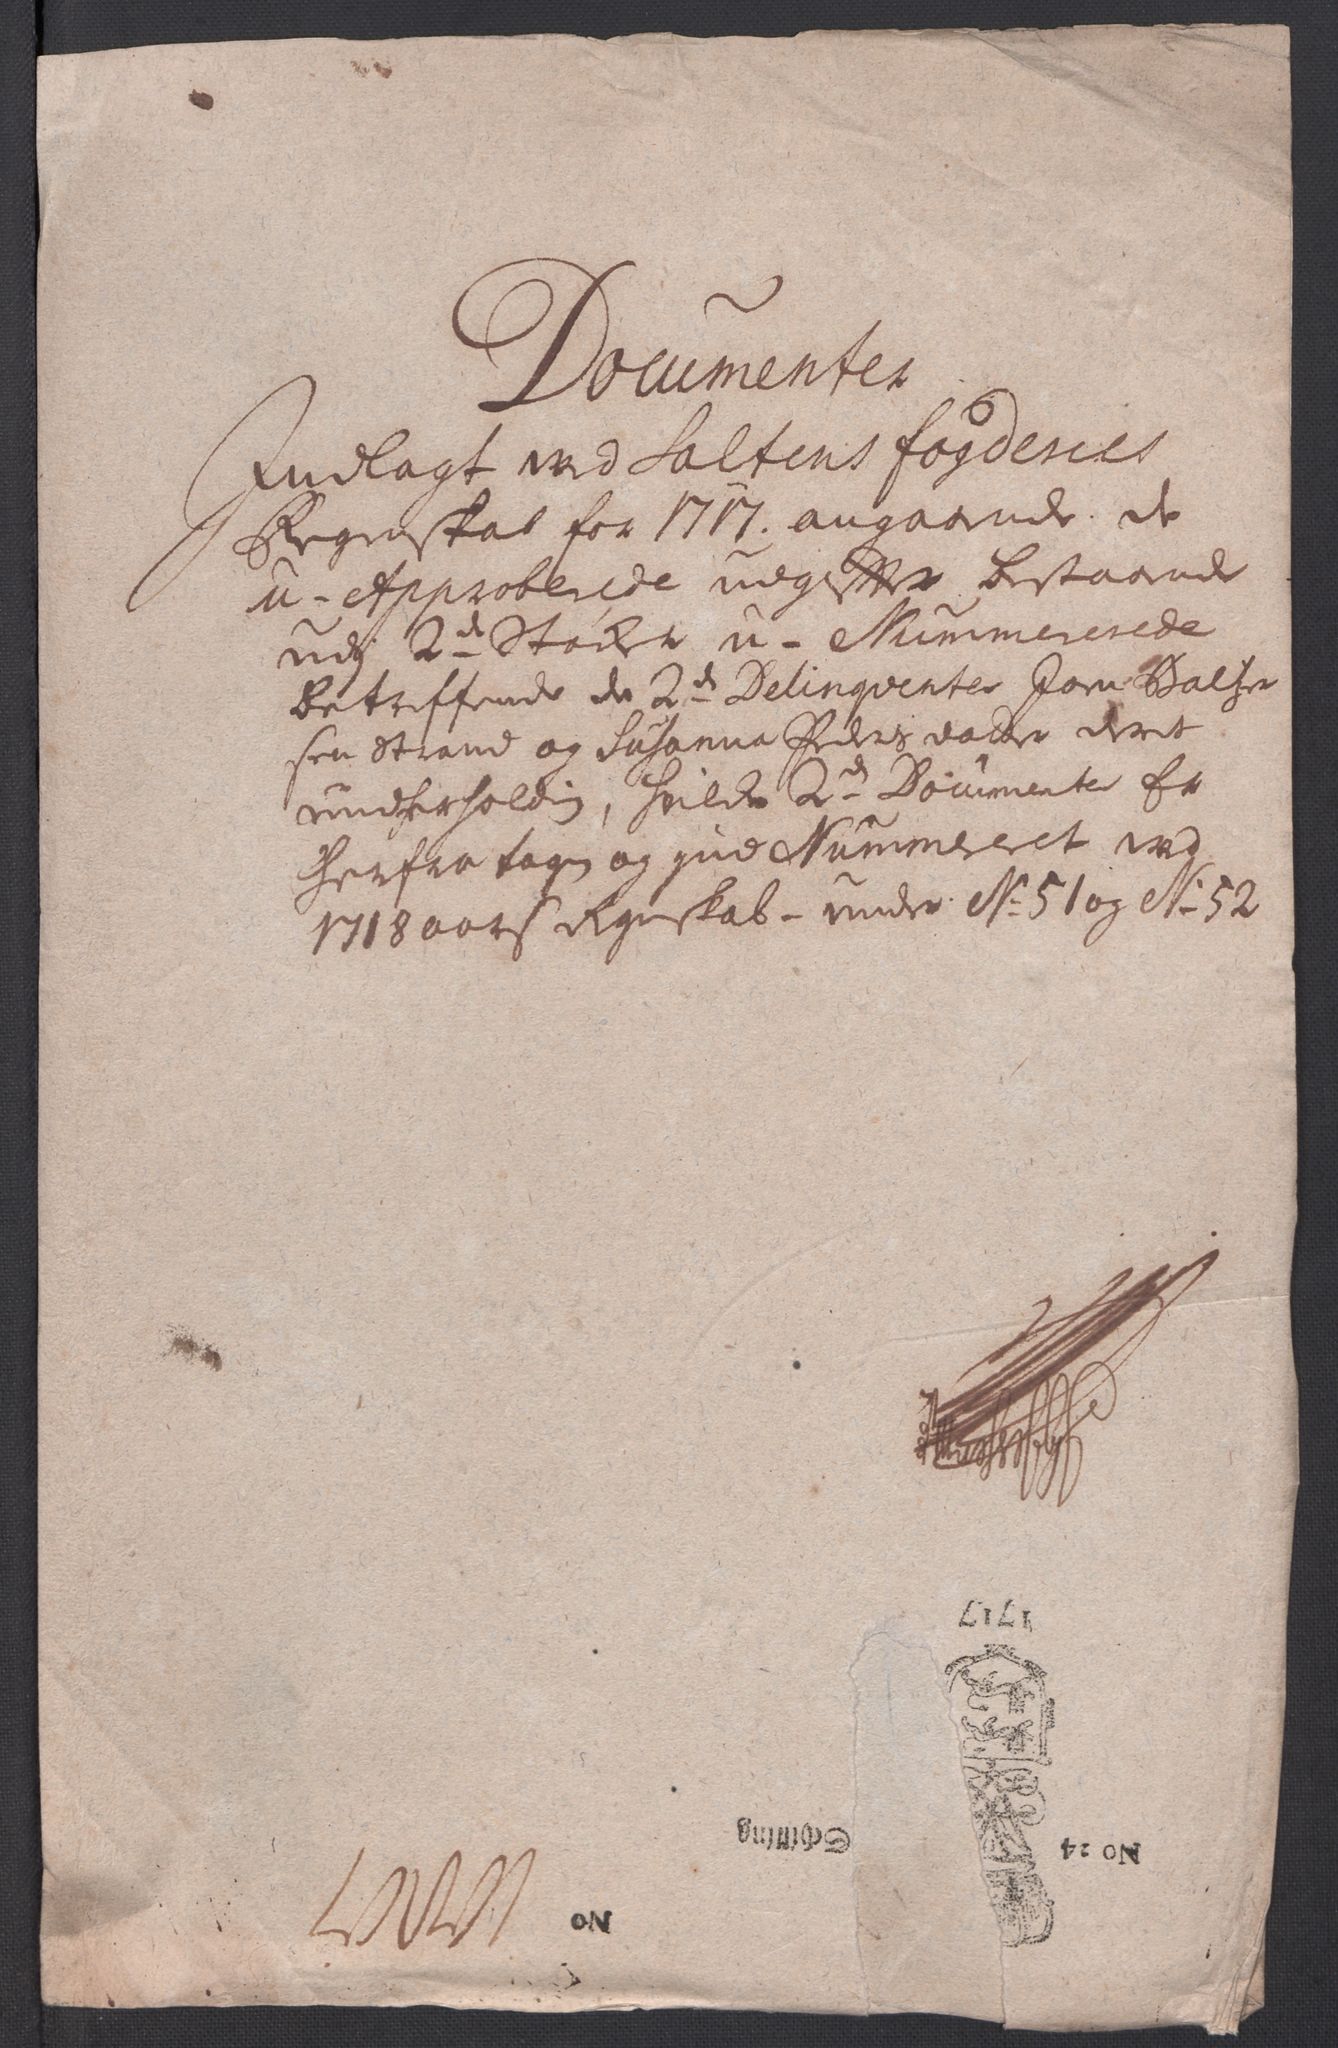 Documenter
Indlagt ved Saltens fogderies
Regenskab for 1717. angaaende de
u-Approberede udgiffter bestaaende
udj 2de Støcker u-Nummererede
betreffende de 2de Delinqventer Joen Balzer
sen Strand og Susanna Peders datter deris
underholdning, hvilcke 2de Documenter Er
herfra tagen og Nummereret ved
1718 aars Regenskab - under No 51 og No 52
1717
No 24
Schilling
No